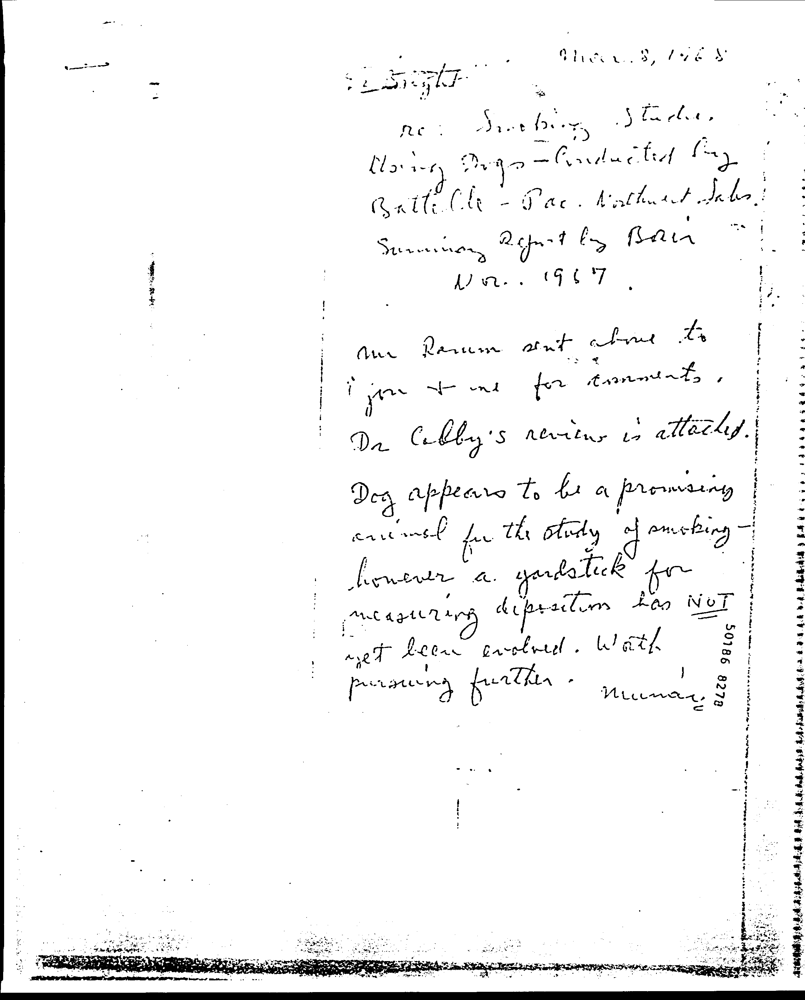 Mar. 8, 1968
re: Smoking Studies
Using Dogs – Conducted by
Battelle – Pac. Northwest Labs.
Summary Report by
Nov. 1967.
Mr sent above to
you + me for comments.
Dr Colby's review is attached.
Dog appears to be a promising
animal for the study of smoking –
however a yardstick for
measuring deposition has NOT
yet been evolved. Worth
pursuing further.
50186 8278